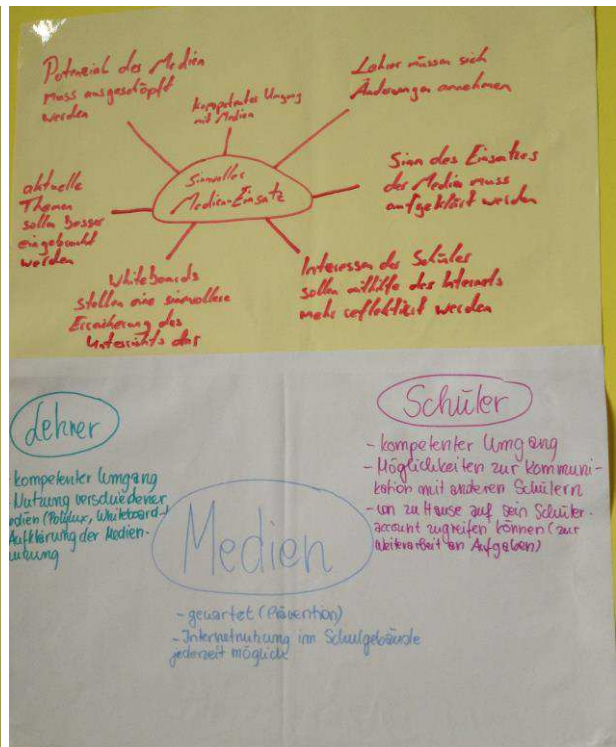 Potenzial der Medien
muss ausgeschöpft
werden
kompetenter Umgang
mit Medien
Lehrer müssen sich
Änderungen annehmen
aktuelle
Themen
sollen besser
eingebracht
werden
Sinnvoller
Medien-Einsatz
Sinn des Einsatzes
der Medien muss
aufgeklärt werden
Whiteboards
stellen eine sinnvollere
Erneicherung des
Unterrichts dar
Interessen der Schüler
sollen mithilfe des Internets
mehr reflektiert werden
Lehrer
- kompetenter Umgang
- Nutzung verschiedener
edien (Polylux, Whiteboard..)
Aufklärung der Medien-
nutzung
Schüler
- kompetenter Umgang
- Möglichkeiten zur Kommuni-
kation mit anderen Schülern
- von zu Hause auf sein Schüler-
account zugreifen können (zur
Weiterarbeit an Aufgaben)
Medien
- gewartet (Prävention)
- Internetnutzung im Schulgebäude
jederzeit möglich